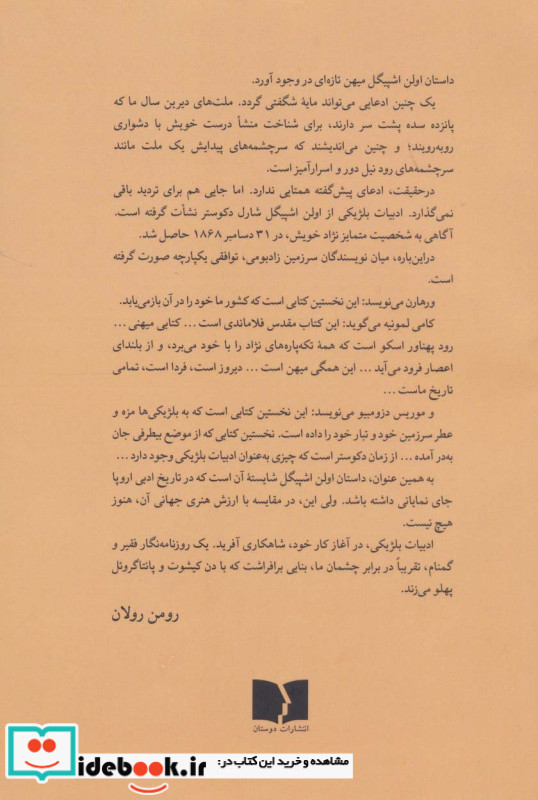 داستان اولن اشپیگل میهن تازه‌ای در وجود آورد.
یک چنین ادعایی می‌تواند مایهٔ شگفتی گردد. ملت‌های دیرین سال ما که
پانزده سده پشت سر دارند، برای شناخت منشأ درست خویش با دشواری
روبه‌رویند؛ و چنین می‌اندیشند که سرچشمه‌های پیدایش یک ملت مانند
سرچشمه‌های رود نیل دور و اسرارآمیز است.
درحقیقت، ادعای پیش‌گفته همتایی ندارد. اما جایی هم برای تردید باقی
نمی‌گذارد. ادبیات بلژیکی از اولن اشپیگل شارل دکوستر نشأت گرفته است.
آگاهی به شخصیت متمایز نژاد خویش، در ۳۱ دسامبر ۱۸۶۸ حاصل شد.
دراین‌باره، میان نویسندگان سرزمین زادبومی، توافقی یکپارچه صورت گرفته
است.
ورهارن می‌نویسد: این نخستین کتابی است که کشور ما خود را در آن بازمی‌یابد.
کامی لمونیه می‌گوید: این کتاب مقدس فلاماندی است ... کتابی میهنی ...
رود پهناور اسکو است که همهٔ تکه‌پاره‌های نژاد را با خود می‌برد، و از بلندای
اعصار فرود می‌آید ... این همگی میهن است ... دیروز است، فردا است، تمامی
تاریخ ماست ...
و موریس دزومبیو می‌نویسد: این نخستین کتابی است که به بلژیکی‌ها مزه و
عطر سرزمین خود و تبار خود را داده است. نخستین کتابی که از موضع بیطرفی جان
به‌در آمده ... از زمان دکوستر است که چیزی به‌عنوان ادبیات بلژیکی وجود دارد ...
به همین عنوان، داستان اولن اشپیگل شایستهٔ آن است که در تاریخ ادبی اروپا
جای نمایانی داشته باشد. ولی این، در مقایسه با ارزش هنری جهانی آن، هنوز
هیچ نیست.
ادبیات بلژیکی، در آغاز کار خود، شاهکاری آفرید. یک روزنامه‌نگار فقیر و
گمنام، تقریباً در برابر چشمان ما، بنایی برافراشت که با دن کیشوت و پانتاگروئل
پهلو می‌زند.
رومن رولان
انتشارات دوستان
مشاهده و خرید این کتاب در:
idebook.ir